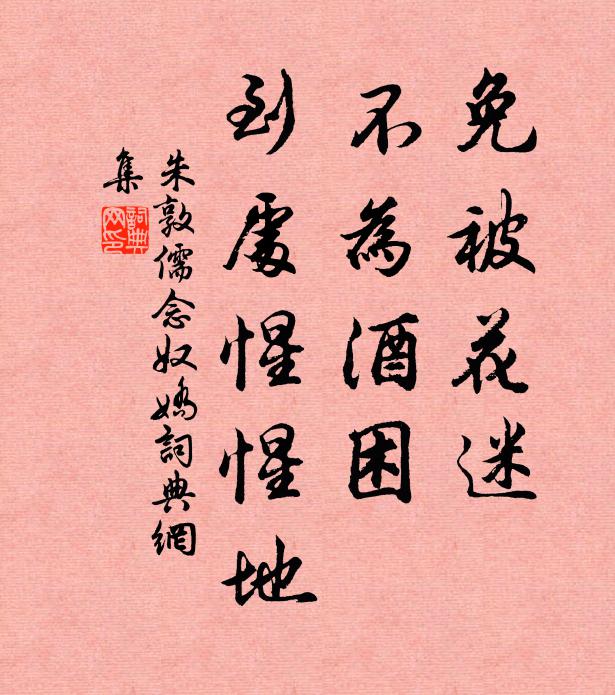 免被花迷
不為酒困
到處惺惺地
朱敦儒念奴嬌詞典網
集
詞典
网印